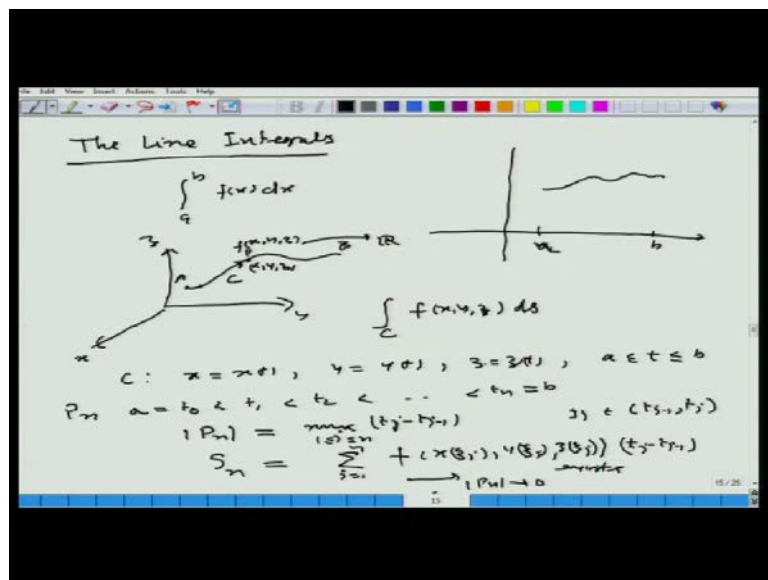 File Edit View Insert Actions Tools Help
The Line Integrals
∫_a^b f(x) dx
z
f(x,y,z) → ℝ
A C (x,y,z) B
a b
x y
∫_C f(x,y,z) ds
C : x = x(t), y = y(t), z = z(t), a ≤ t ≤ b
P_n a = t_0 < t_1 < t_2 < .. < t_n = b
|P_n| = max_{1≤j≤n} (t_j - t_{j-1}) ξ_j ∈ (t_{j-1}, t_j)
S_n = Σ_{j=1}^n f(x(ξ_j), y(ξ_j), z(ξ_j)) (t_j - t_{j-1})
→ |P_n| → 0
15 / 26
15